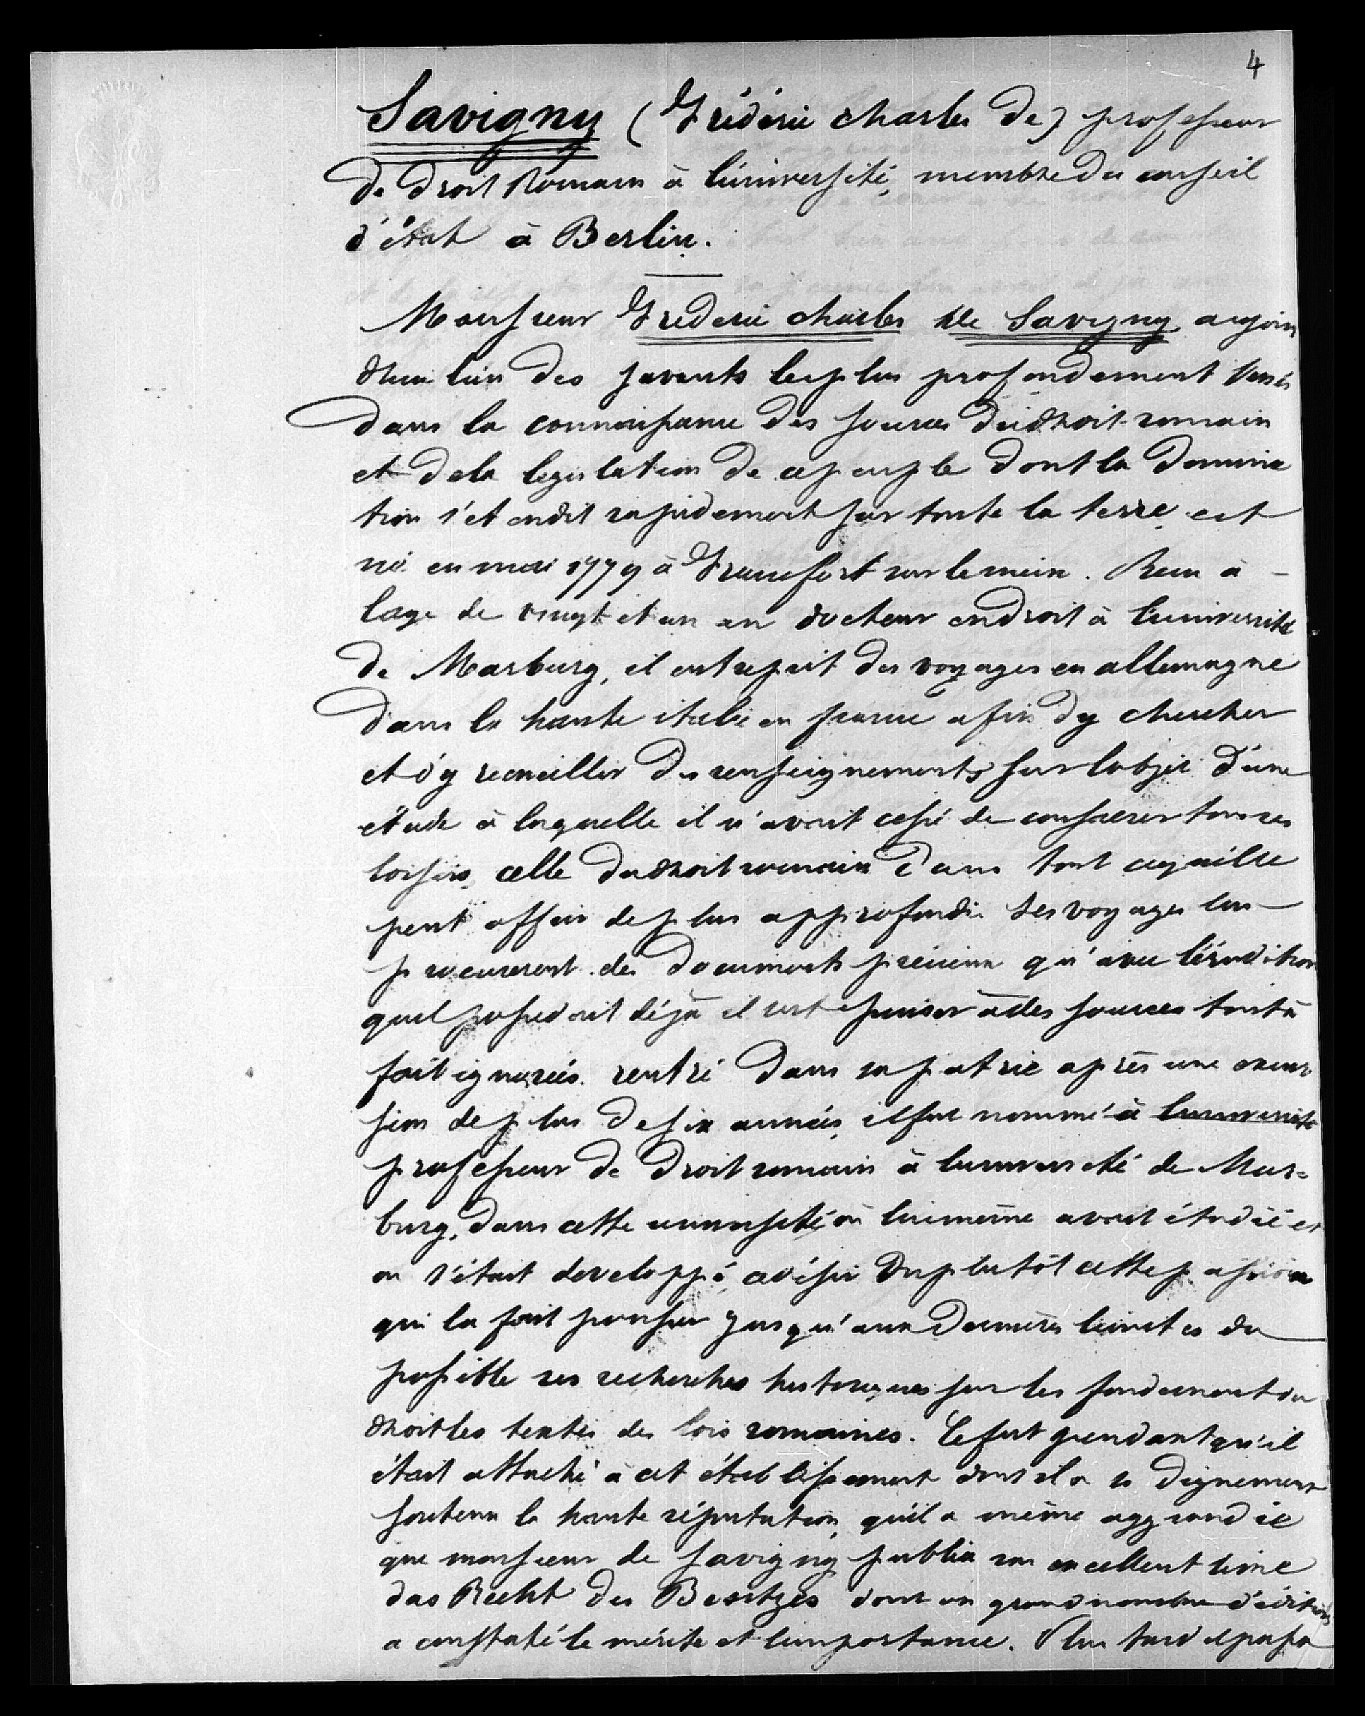 4
Savigny (Frédéric charles de) professeur
de droit Romain à l'université, membre du conseil
d'état à Berlin.
Monsieur Frederic charles de Savigny aujour
d'hui l'un des savants les plus profondement versés
dans la connaissance des sources du droit romain
et de la legislation de ce peuple dont la domina
tion s'etendit rapidement sur toute la terre est
né en mai 1779 à Francfort sur le mein. Recu à
l'age de vingt et un an docteur en droit à l'université
de Marburg, il entreprit des voyages en allemagne
dans la haute italie en france afin d'y chercher
et d'y recueillir des renseignements sur l'objet d'une
étude à laquelle il n'avait cessé de consacrer tous ses
loisirs, celle du droit romain dans tout ce qu'elle
peut offrir de plus approfondi. Ses voyages lui
procurerent des documents precieux qu'avec l'érudition
qu'il possedait déjà il sut puiser à des sources tout à
fait ignorées. rentré dans sa patrie après une excur
sion de plus de six années, il fut nommé à l'université
professeur de droit romain à l'université de Mar=
burg, dans cette université où lui même avait étudié et
ou s'était developpé ce désir ou plutôt cette passion
qui lu fait pousser jusqu'aux dernières limites du
possible ses recherches historiques sur les fondements du
droit les textes des lois romaines. Ce fut pendant qu'il
était attaché à cet établissement dont il a si dignement
soutenu la haute réputation, qu'il a même aggrandie
que monsieur de Savigny publia son excellent livre
das Recht des Besitzes dont un grand nombre d'éditions
a constaté le mérite et l'importance. Plus tard il passa